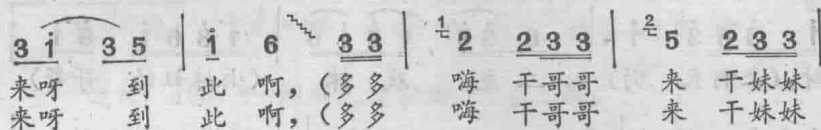 3 i 3 5 | i 6 3 3 | 1 2 2 3 3 | 2 5 2 3 3
来呀 到 此 啊，（多多 嗨 干哥哥 来 干妹妹
来呀 到 此 啊，（多多 嗨 干哥哥 来 干妹妹